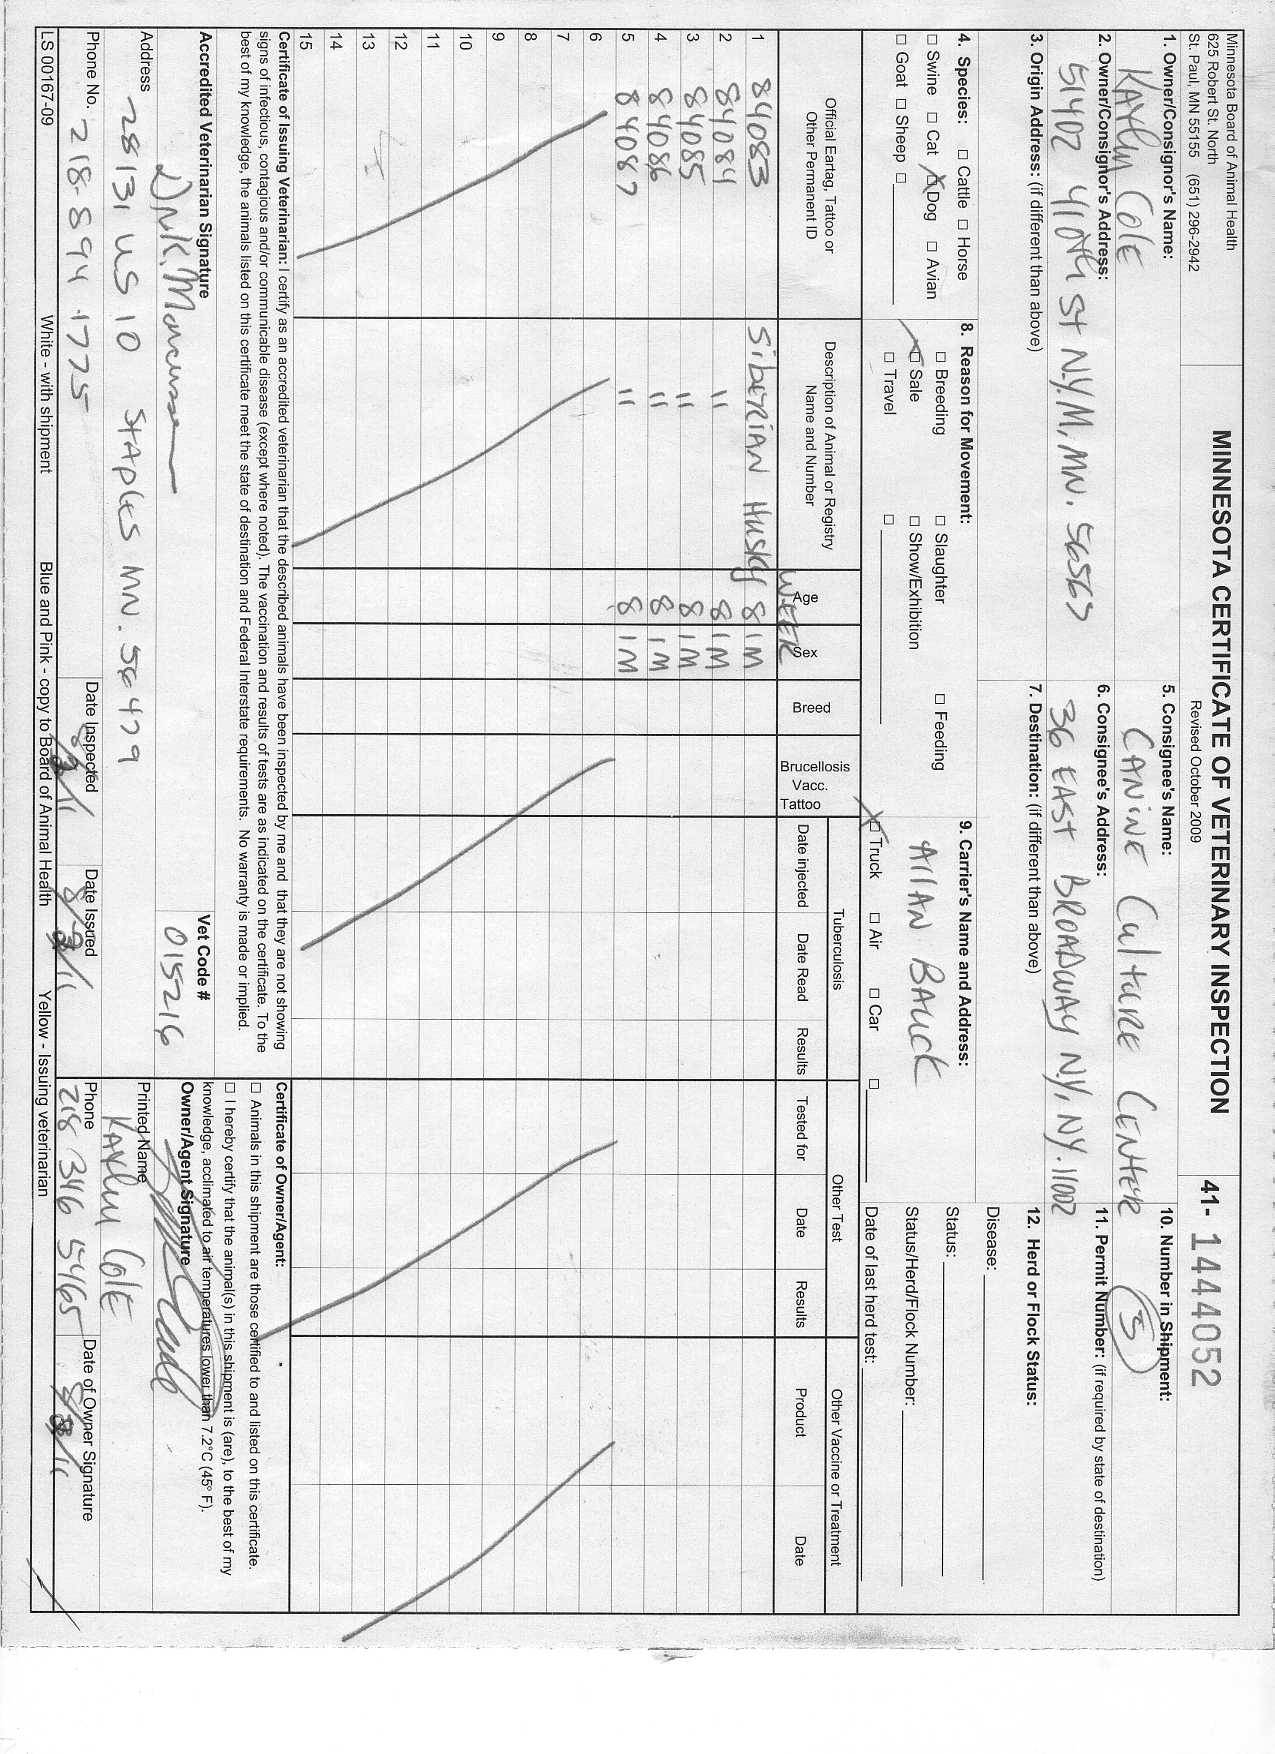 Minnesota Board of Animal Health
625 Robert St. North
St. Paul, MN 55155 (651) 296-2942
MINNESOTA CERTIFICATE OF VETERINARY INSPECTION
Revised October 2009
41- 1444052
1. Owner/Consignor's Name:
Kaylin Cole
2. Owner/Consignor's Address:
51402 410th St N.Y.M, MN. 56567
3. Origin Address: (if different than above)
5. Consignee's Name:
CANINE Culture CENTER
6. Consignee's Address:
36 EAST BROADWAY N.Y, NY. 11002
7. Destination: (if different than above)
10. Number in Shipment:
5
11. Permit Number: (if required by state of destination)
12. Herd or Flock Status:
Disease:
Status:
Status/Herd/Flock Number:
Date of last herd test:
4. Species: □ Cattle □ Horse
□ Swine □ Cat ☒ Dog □ Avian
□ Goat □ Sheep □
8. Reason for Movement:
□ Breeding □ Slaughter □ Feeding
☒ Sale □ Show/Exhibition
□ Travel □
9. Carrier's Name and Address:
Allan Bauck
☒ Truck □ Air □ Car □
Official Eartag, Tattoo or Other Permanent ID
Description of Animal or Registry Name and Number
Age
WEEK
Sex
Breed
Brucellosis Vacc. Tattoo
Tuberculosis
Date injected Date Read Results
Other Test
Tested for Date Results
Other Vaccine or Treatment
Product Date
1 84083 SIBERIAN Husky 8 1M
2 84084 " 8 1M
3 84085 " 8 1M
4 84086 " 8 1M
5 84087 " 8 1M
6
7
8
9
10
11
12
13
14
15
Certificate of Issuing Veterinarian: I certify as an accredited veterinarian that the described animals have been inspected by me and that they are not showing
signs of infectious, contagious and/or communicable disease (except where noted). The vaccination and results of tests are as indicated on the certificate. To the
best of my knowledge, the animals listed on this certificate meet the state of destination and Federal Interstate requirements. No warranty is made or implied.
Accredited Veterinarian Signature
Vet Code #
015216
Address
28131 US 10 STAPLES MN. 56479
Phone No.
218-894-1775
Date Inspected
Date Issued
Certificate of Owner/Agent:
□ Animals in this shipment are those certified to and listed on this certificate.
□ I hereby certify that the animal(s) in this shipment is (are), to the best of my
knowledge, acclimated to air temperatures lower than 7.2°C (45° F).
Owner/Agent Signature
Printed Name
Kaylin Cole
Phone
218 346 5465
Date of Owner Signature
LS 00167-09
White - with shipment
Blue and Pink - copy to Board of Animal Health
Yellow - Issuing veterinarian